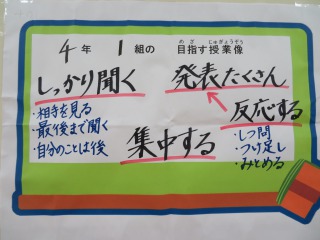 4年 1組の 目指す授業像
めざ じゅぎょうぞう
しっかり聞く
・相手を見る
・最後まで聞く
・自分のことは後
発表たくさん
反応する
・しつ問
・つけ足し
・みとめる
集中する